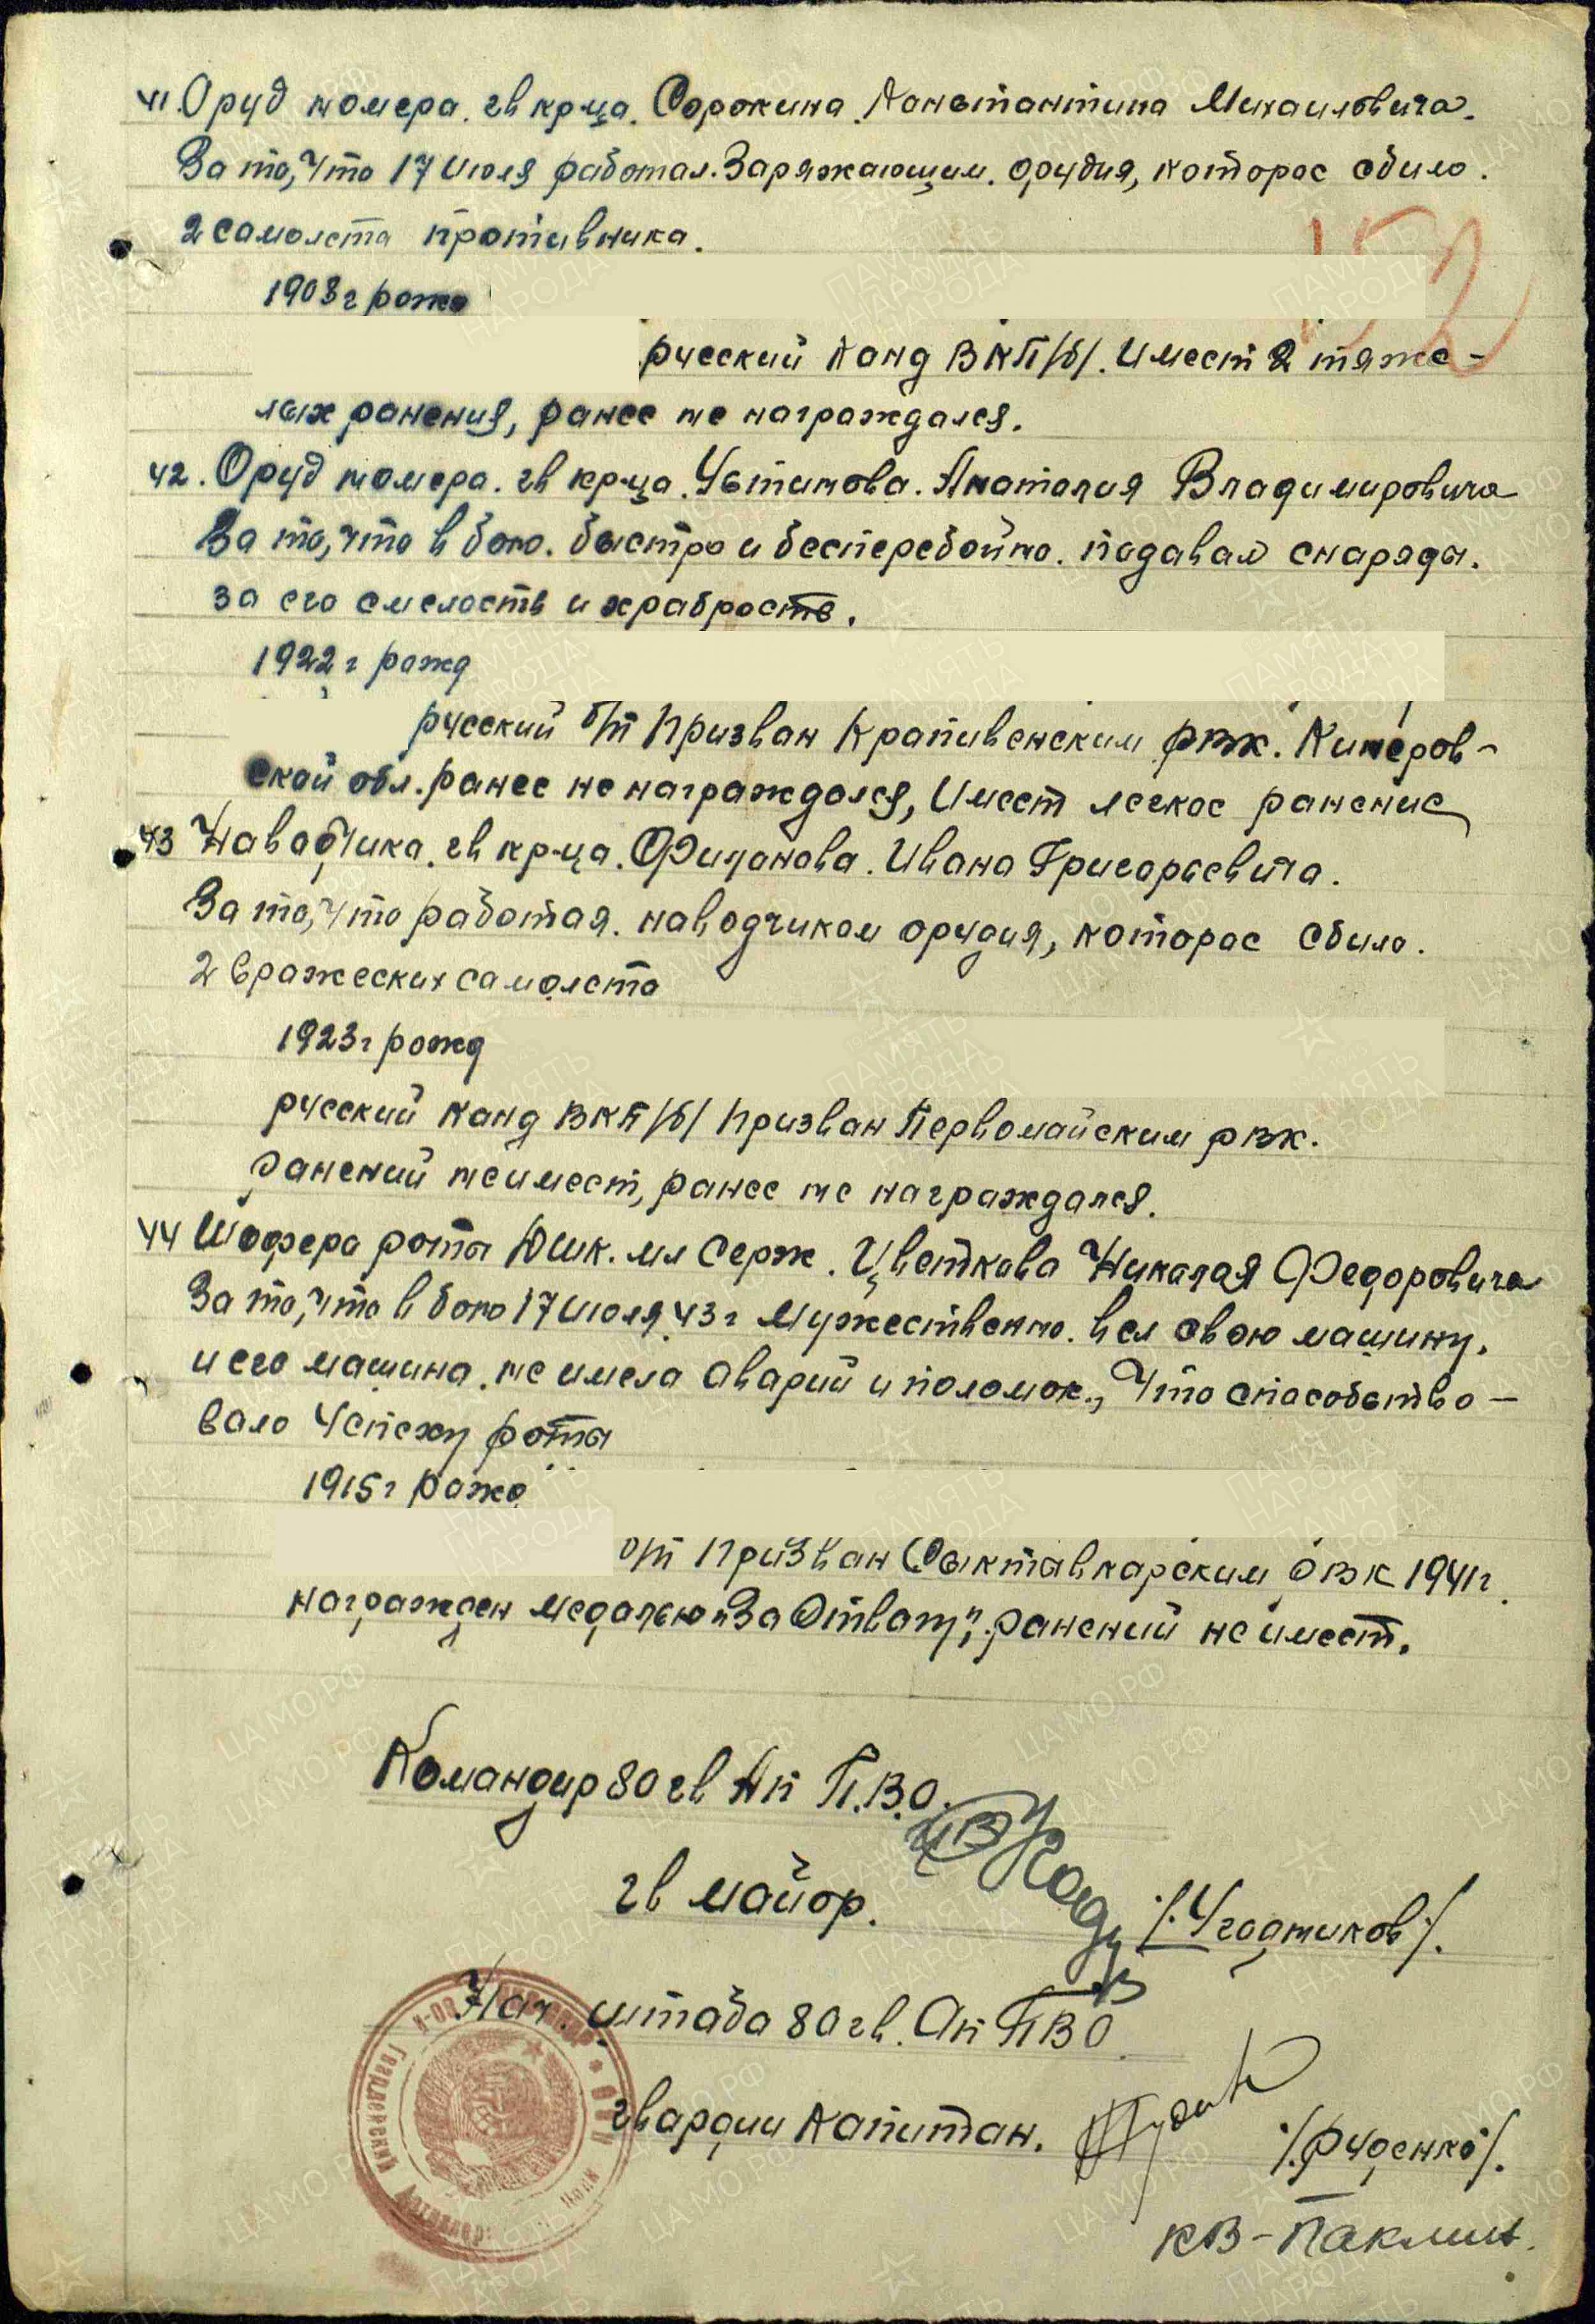 41. Оруд номера. гв кр-ца. Сорокина. Константина Михаиловича.
За то, что 17 июля работал. Заряжающим. орудия, которое сбило.
2 самолета противника.
152
1908 г рожд
русский Канд ВКП/б/. Имеет 2 тяже-
лых ранения, ранее не награждался.
42. Оруд номера. гв кр-ца. Устинова. Анатолия Владимировича
За то, что в бою. быстро и бесперебойно. подавал снаряды.
за его смелость и храбрость.
1922 г рожд
русский б/п Призван Крапивенским рвк. Кимеров-
ской обл. ранее не награждался, Имеет легкое ранение
43 Наводчика. гв кр-ца. Филонова. Ивана Григорьевича.
За то, что работая. наводчиком орудия, которое сбило.
2 вражеских самолета
1923 г рожд
русский Канд ВКП/б/ Призван Первомайским рвк.
ранений не имеет, ранее не награждался.
44 Шофера роты ДШК. мл Серж. Цветкова Николая Федоровича
За то, что в бою 17 июля 43 г Мужественно. вел свою машину.
и его машина. не имела аварий и поломок., Что способство-
вало Успеху роты
1915 г рожд
б/п Призван Сыктавкарским рвк 1941 г.
награжден медалью „За Отвагу". ранений не имеет.
Командир 80 гв Ап П.В.О.
гв майор. /. Угодников /.
Нач. штаба 80 гв. Ап ПВО.
гвардии Капитан. /. Руденко /.